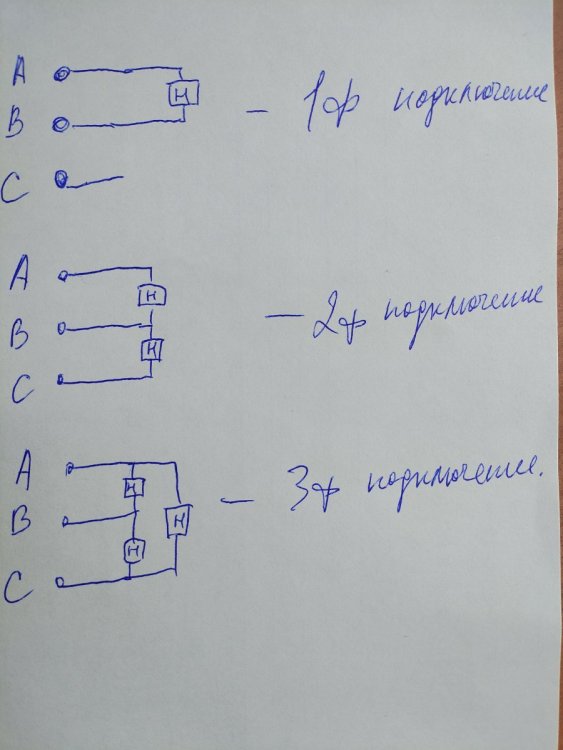 A
Н
B
- 1ф подключение
C
A
Н
B
- 2ф подключение
Н
C
A
Н
B
Н
- 3ф подключение.
Н
C